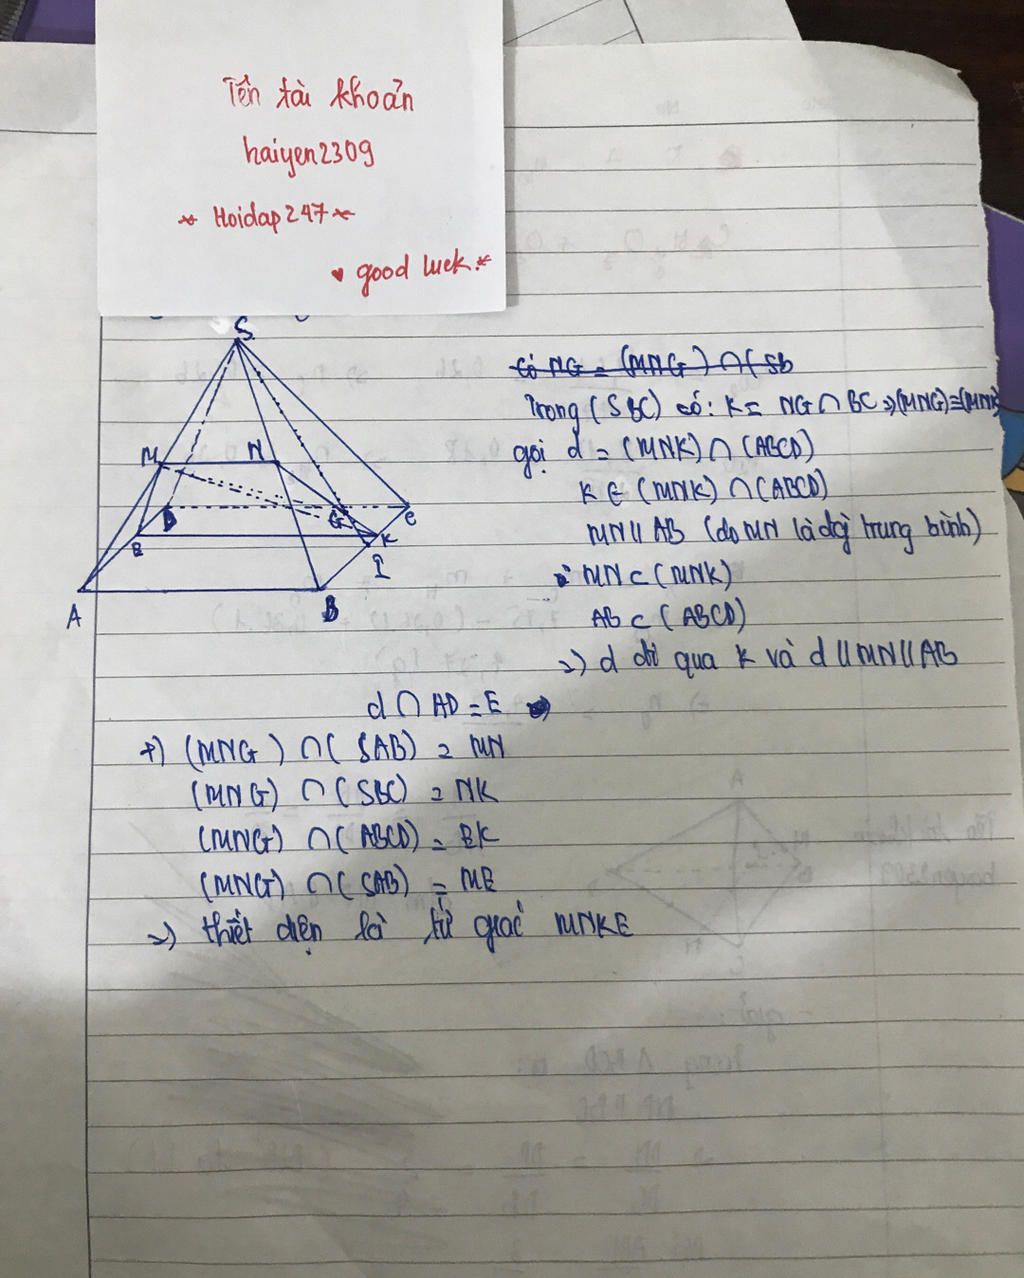 Tên tài khoản
haiyen2309
* Hoidap247 *
♥ good luck.*
S
M N
D G C
E K
I
A B
Có NG = (MNG) ∩ (Sb
Trong (SBC) có: K = NG ∩ BC => (MNG) ≡ (MNK)
gọi d = (MNK) ∩ (ABCD)
K ∈ (MNK) ∩ (ABCD)
MN // AB (do MN là đg trung bình)
MN ⊂ (MNK)
AB ⊂ (ABCD)
=> d đi qua K và d // MN // AB
d ∩ AD = E
+) (MNG) ∩ (SAB) = MN
(MNG) ∩ (SBC) = NK
(MNG) ∩ (ABCD) = EK
(MNG) ∩ (SAB) = ME
=> thiết diện là tứ giác MNKE